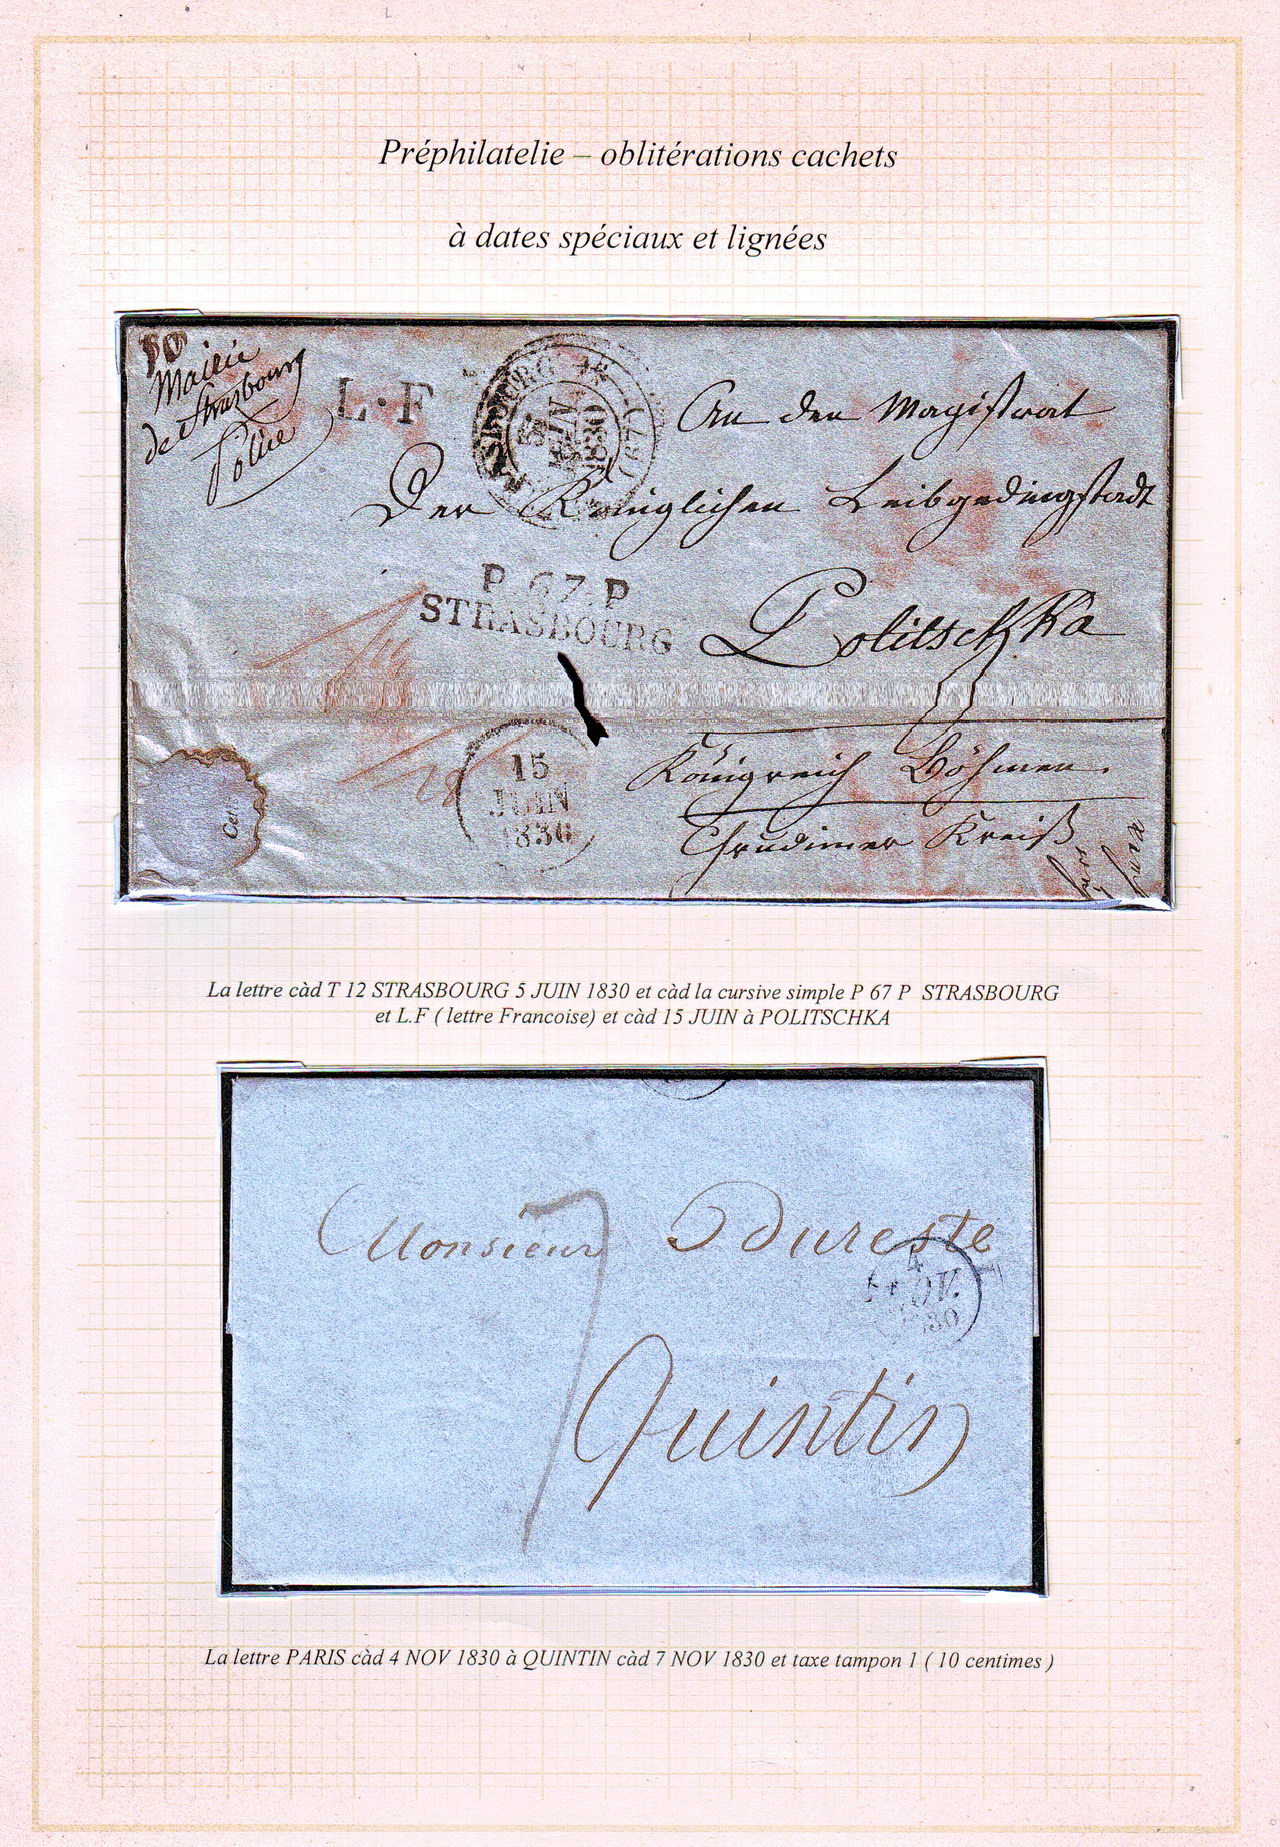 Préphilatelie – oblitérations cachets
à dates spéciaux et lignées
Mairie
de Strasbourg
Police
L·F
STRASBOURG
(67)
5
JUIN
1830
An den Magistrat
Der Königlichen Leibgedingstadt
P. 67. P
STRASBOURG
Politschka
15
JUIN
1830
Königreich Böhmen.
Chrudimer Kreiß
La lettre càd T 12 STRASBOURG 5 JUIN 1830 et càd la cursive simple P 67 P STRASBOURG
et L.F ( lettre Francoise) et càd 15 JUIN à POLITSCHKA
Monsieur Dureste
4
NOV.
Quintin
La lettre PARIS càd 4 NOV 1830 à QUINTIN càd 7 NOV 1830 et taxe tampon 1 ( 10 centimes )